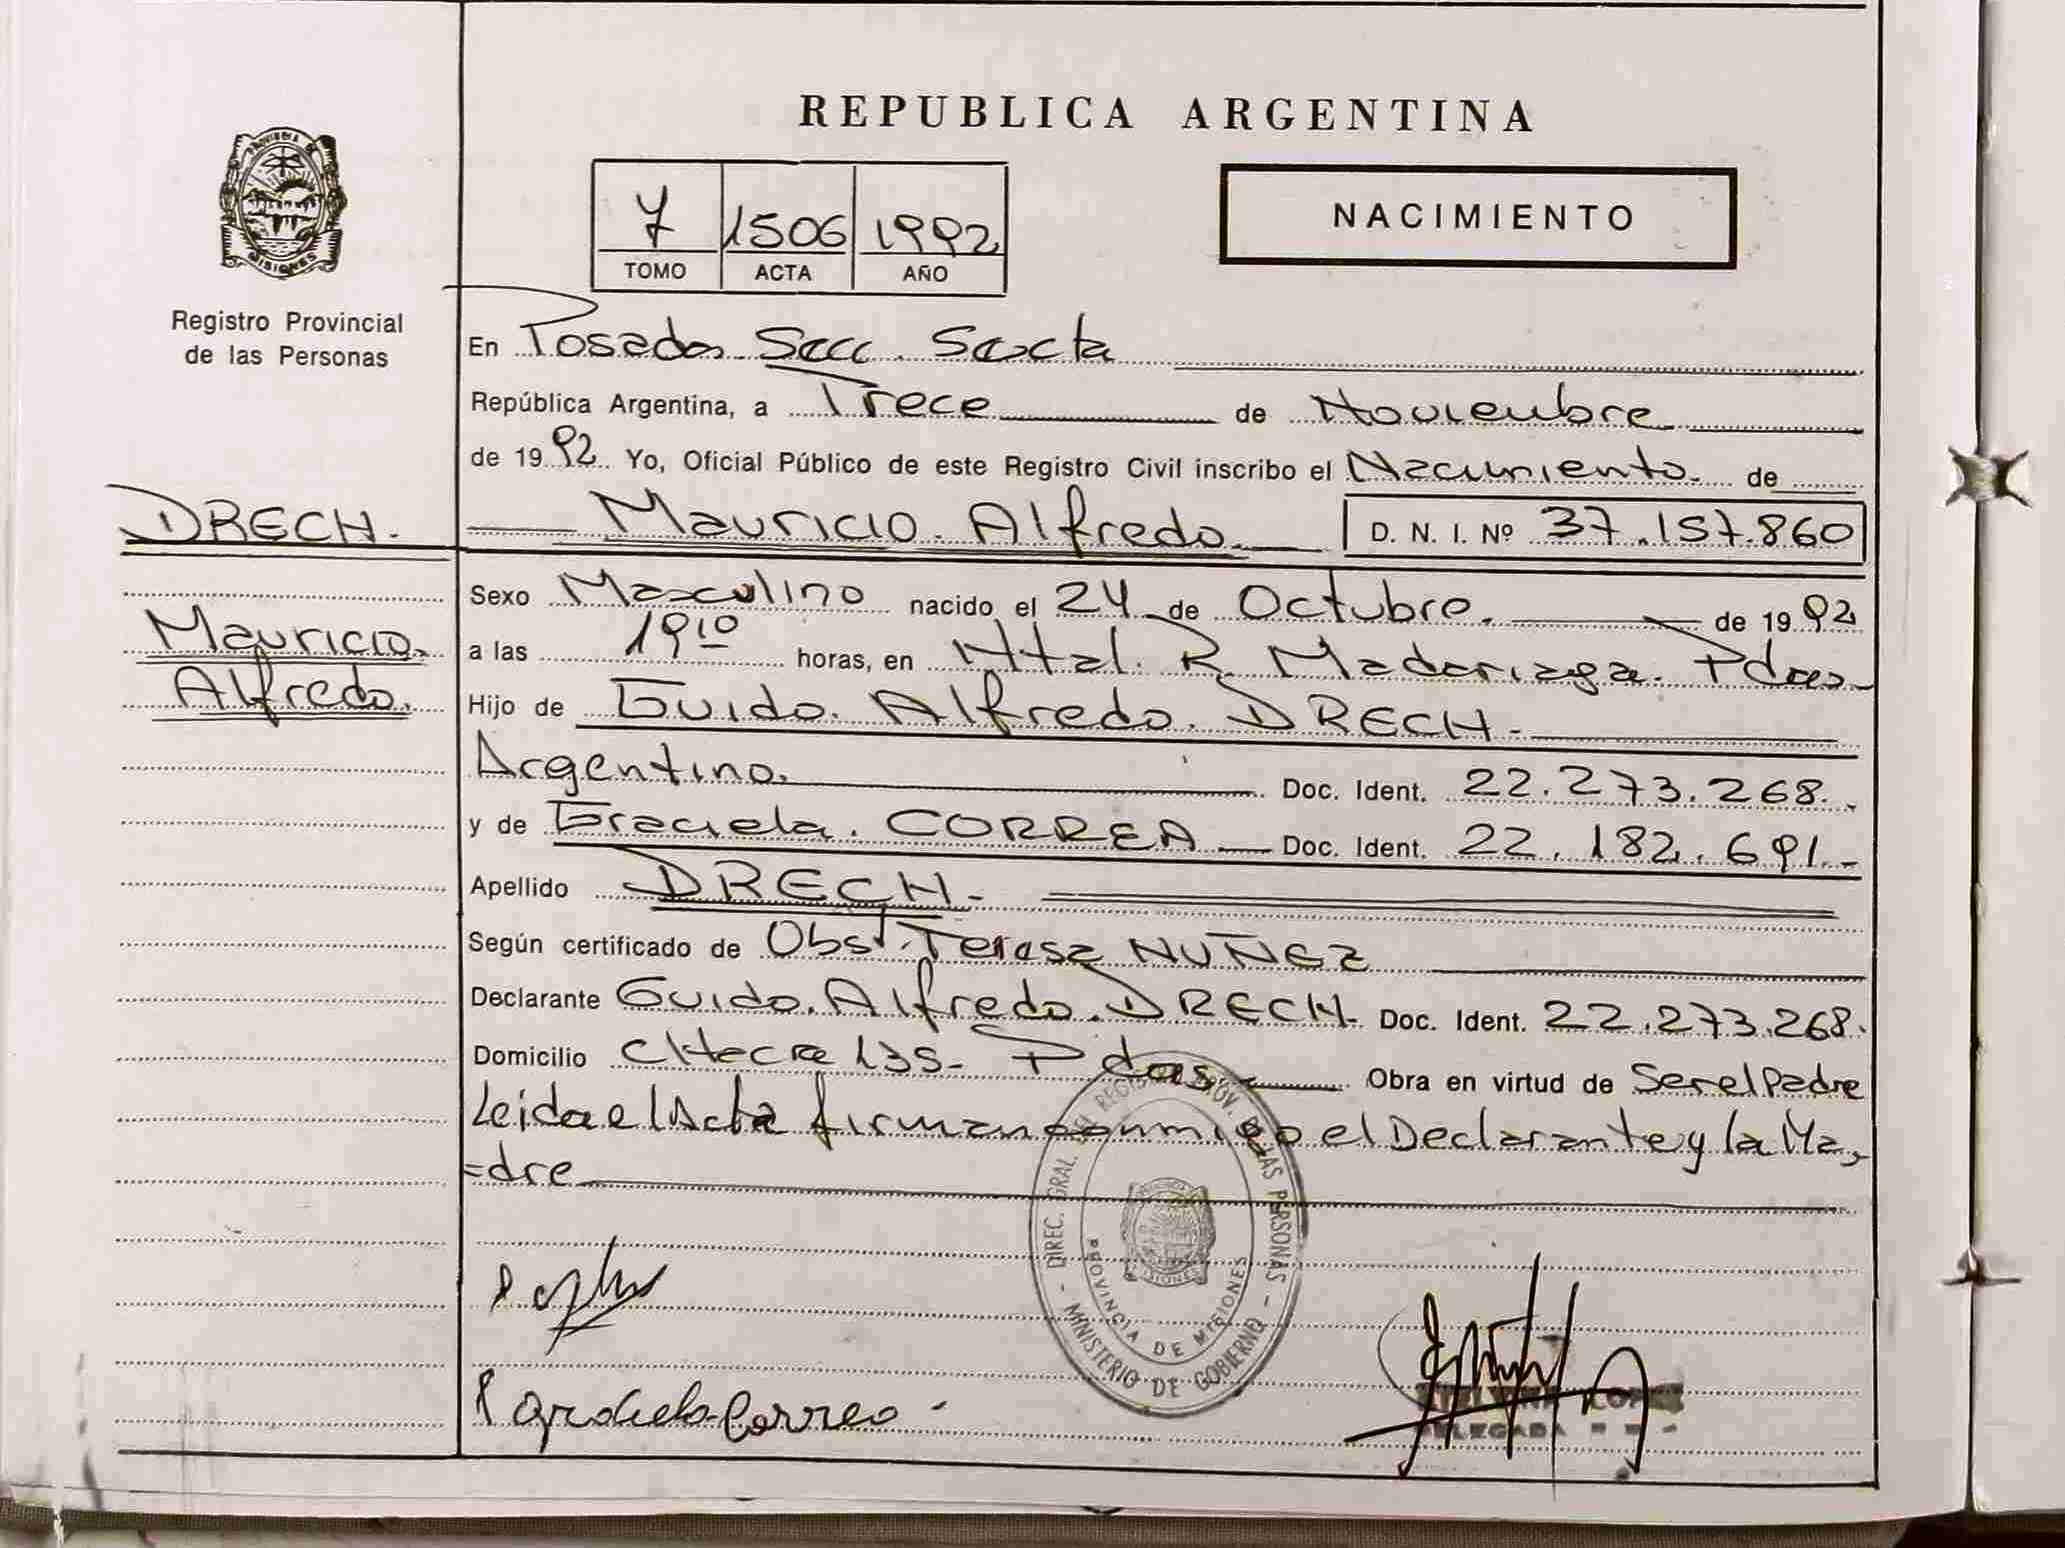 REPUBLICA ARGENTINA
PROVINCIA DE
MISIONES
Registro Provincial
de las Personas
7 1506 1992
TOMO ACTA AÑO
NACIMIENTO
En Posadas Secc. Sexta
República Argentina, a Trece de Noviembre
de 1992 Yo, Oficial Público de este Registro Civil inscribo el Nacimiento de
DRECH.
Mauricio Alfredo D. N. I. Nº 37.157.860
Mauricio
Alfredo.
Sexo Masculino nacido el 24 de Octubre de 1992
a las 19 10 horas, en Htal. R. Madariaga. Pdas
Hijo de Guido Alfredo DRECH
Argentino. Doc. Ident. 22.273.268.
y de Graciela CORREA Doc. Ident. 22.182.691.-
Apellido DRECH-
Según certificado de Obst. Teresa NUÑEZ
Declarante Guido Alfredo DRECH Doc. Ident. 22.273.268.
Domicilio CHacra 135- Pdas Obra en virtud de Ser el Padre
Leida el Acta firman conmigo el Declarante y la Ma,
=dre
DIREC. GRAL. DEL REGISTRO PROV. DE LAS PERSONAS - MINISTERIO DE GOBIERNO -
PROVINCIA DE MISIONES
MISIONES
Graciela Correa -
DELEGADA